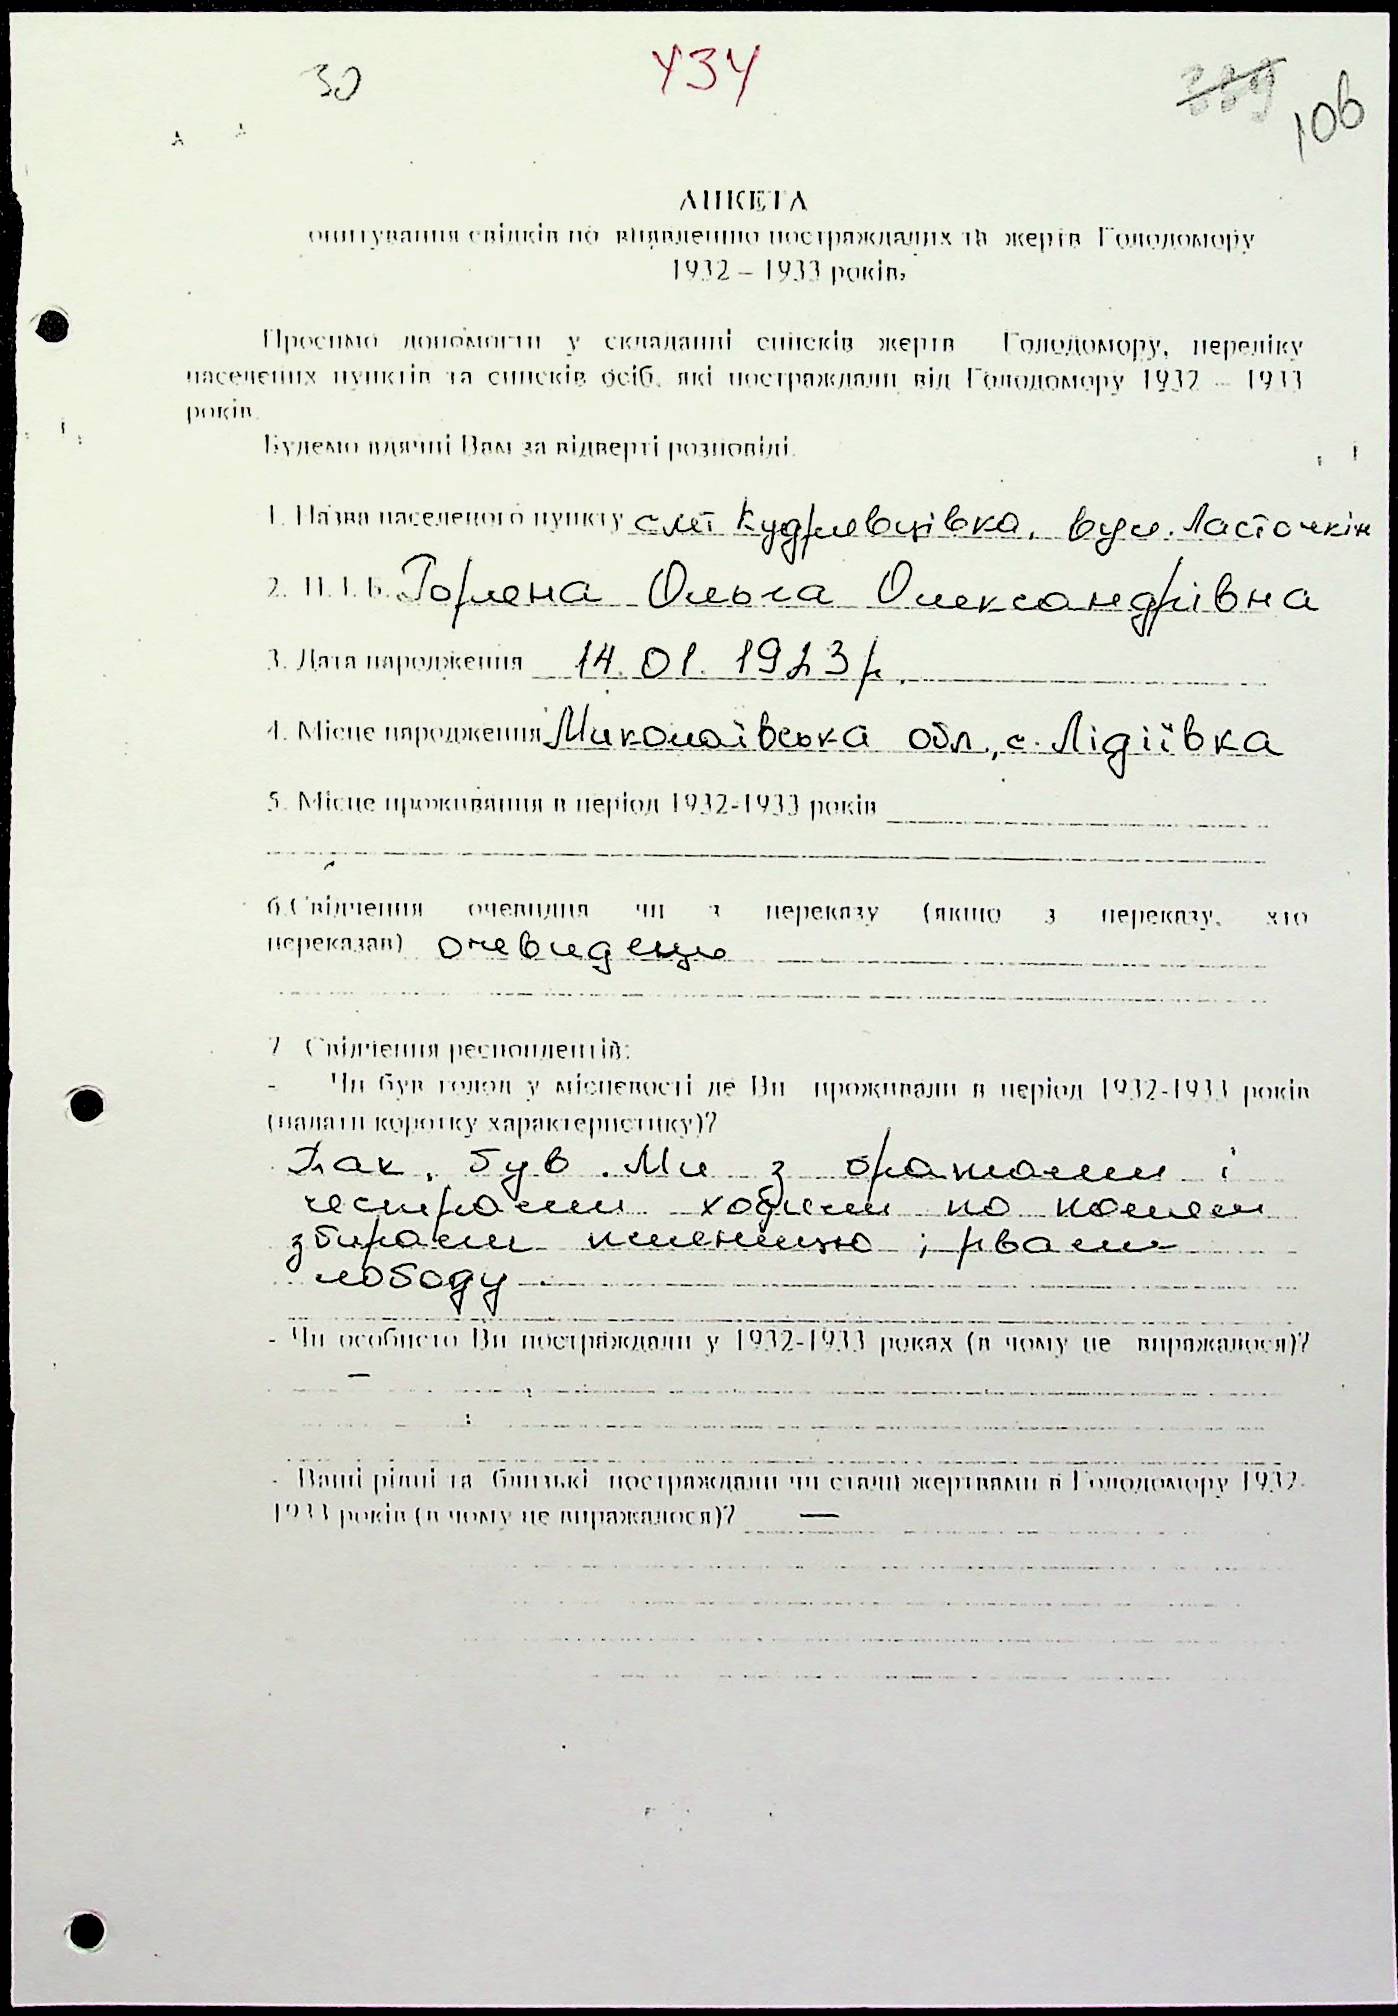 30 434 339 106
АНКЕТА
опитування свідків по виявленню постраждалих та жертв Голодомору
1932 – 1933 років.
Просимо допомогти у складанні списків жертв Голодомору, переліку
населених пунктів та списків осіб, які постраждали від Голодомору 1932 – 1933
років.
Будемо вдячні Вам за відверті розповіді.
1. Назва населеного пункту смт Кудрявцівка, вул. Ласточкін
2. П.І.Б. Горлена Ольга Олександрівна
3. Дата народження 14.01.1923р.
4. Місце народження Миколаївська обл., с. Лідіївка
5. Місце проживання в період 1932-1933 років
6.Свідчення очевидця чи з переказу (якщо з переказу, хто
переказав) очевидець
7. Свідчення респондентів:
- Чи був голод у місцевості де Ви проживали в період 1932-1933 років
(надати коротку характеристику)?
Так, був. Ми з братами і
сестрами ходили по полям
збирали пшеницю і рвали
лободу
- Чи особисто Ви постраждали у 1932-1933 роках (в чому це виражалося)?
—
- Ваші рідні та близькі постраждали чи стали жертвами в Голодомору 1932-
1933 років (в чому це виражалося)? —